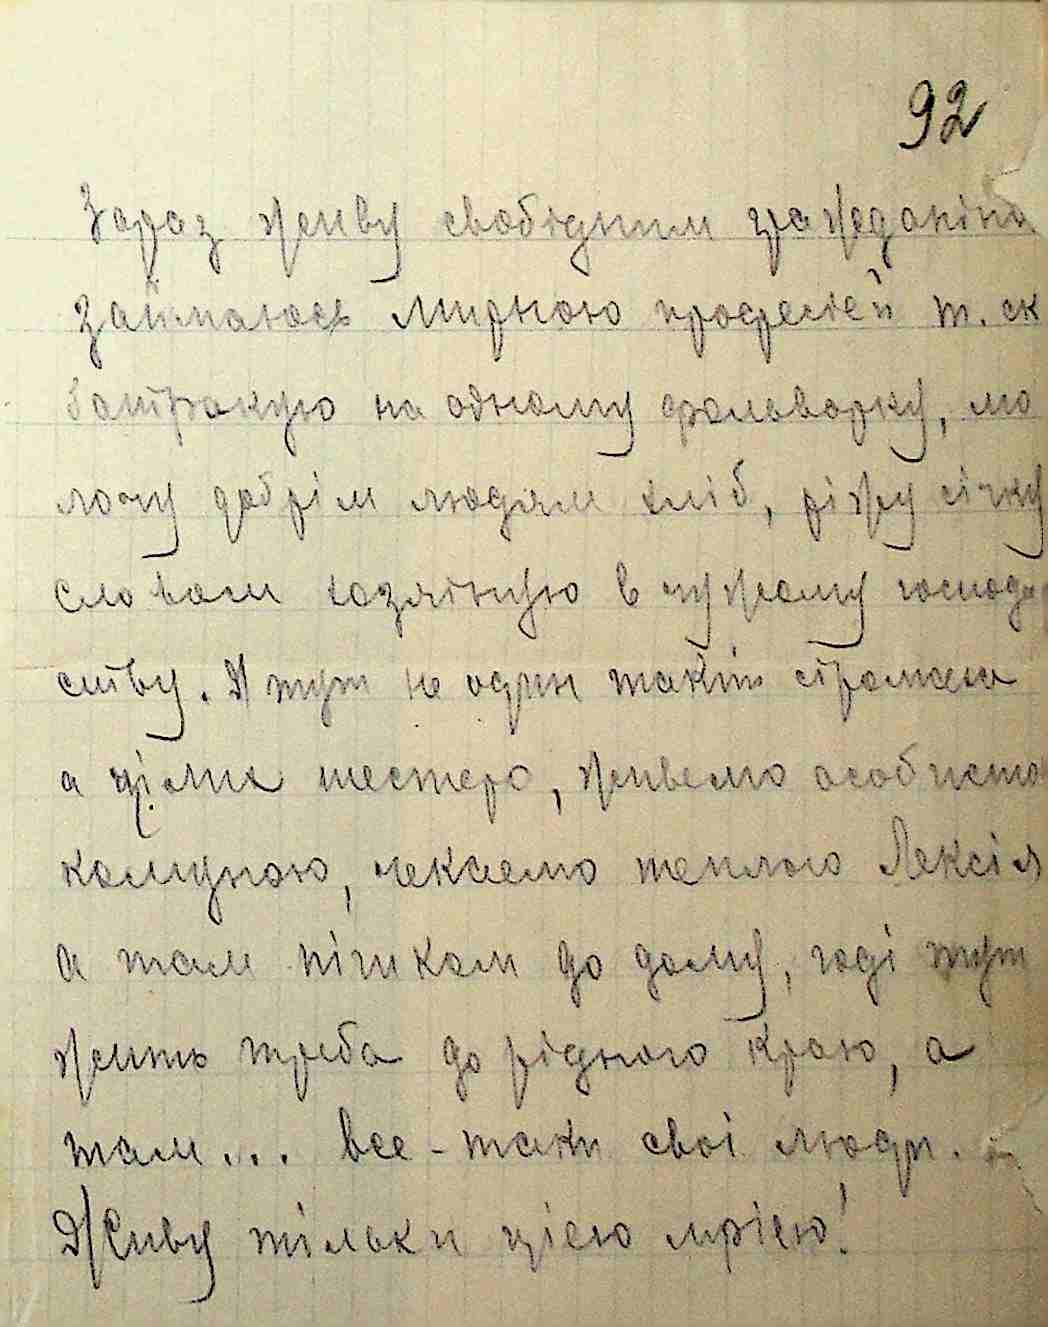 92
Зараз живу свобідним гражданіно
займаюсь мирною професієй т. ск
батракую на одному фольварку, мо
лочу добрім людям хліб, ріжу січку
словом хазяіную в чужому господар
ству. Я тут не один такий
а цілих шестеро, живемо особистою
комуною, чекаємо теплого Лексія
а там пішком до дому, годі тут
жить треба до рідного краю, а
там... все-таки свої люди.
Живу тільки цією мрією!